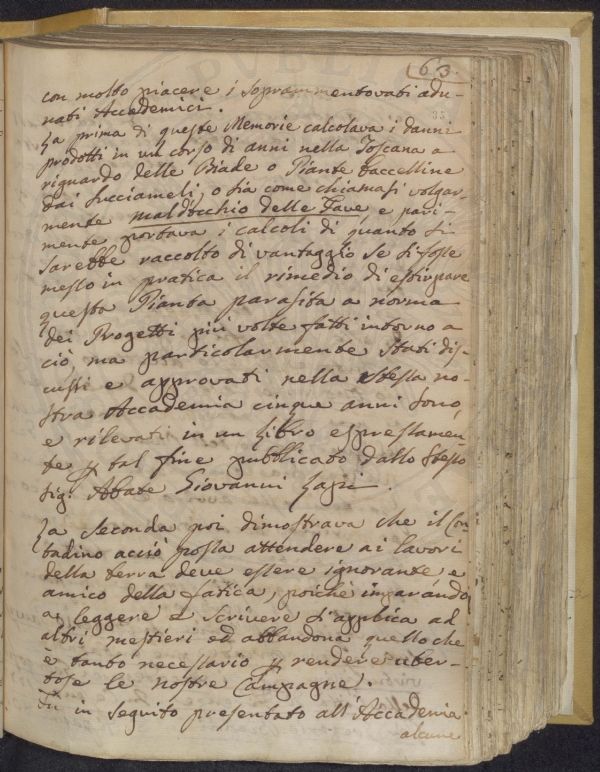 63.
35
con molto piacere i soprammentovati adu-
nati Accademici.
La prima di queste Memorie calcolava i danni
prodotti in un corso di anni nella Toscana a
riguardo delle Biade o Piante Baccelline
dai Succiameli, o sia come chiamasi volgar-
mente maldocchio delle Fave e pari-
mente portava i calcoli di quanto si
sarebbe raccolto di vantaggio se si fosse
messo in pratica il rimedio di estirpare
questa Pianta parasita a norma
dei Progetti più volte fatti intorno a
ciò, ma particolarmente stati dis-
cussi e approvati nella stessa no-
stra Accademia cinque anni sono,
e rilevati in un Libro espressamen-
te p tal fine pubblicato dallo stesso
Sig. Abate Giovanni Lapi.
La seconda poi dimostrava che il Con-
tadino acciò possa attendere ai lavori
della terra deve essere ignorante, e
amico della fatica, poichè imparando
a leggere e scrivere s'applica ad
altri mestieri ed abbandona quello che
è tanto necessario p rendere uber-
tose le nostre Campagne.
Fu in seguito presentato all'Accademia
alcune